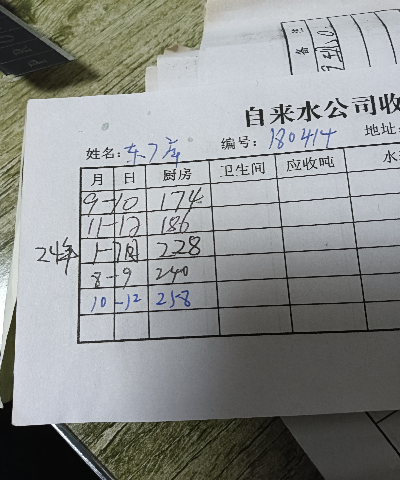 自来水公司收
姓名: 东7库 编号: 180414 地址:
月 日 厨房 卫生间 应收吨 水
9-10 174
11-12 186
24年 1-7月 228
8-9 240
10-12 258